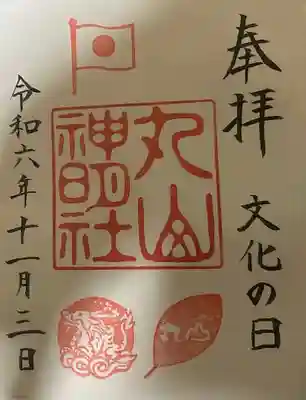 奉拝
文化の日
丸山
神明社
令和六年十一月三日